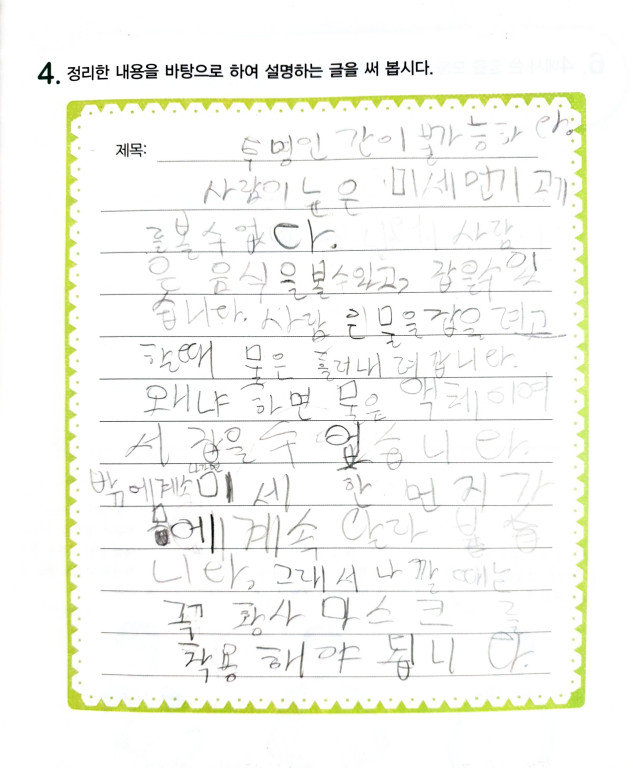 4. 정리한 내용을 바탕으로 하여 설명하는 글을 써 봅시다.
제목: 투명인 간이 불가능하 다.
사람이 눈은 미세먼지 고기
를볼수없다. 사람
은 음식을볼수있고, 잡을수있
습니다. 사람 은물을잡을려고
할때 물은 흘러내려갑니다.
왜냐하면 물은 액체이여
서 잡을수 없습니다.
밖에계속 미세 한 먼지가
몸에계속 달라 붙습
니다, 그래서 나갈때는
꼭 황사마스크 를
착용해야 됩니 다.